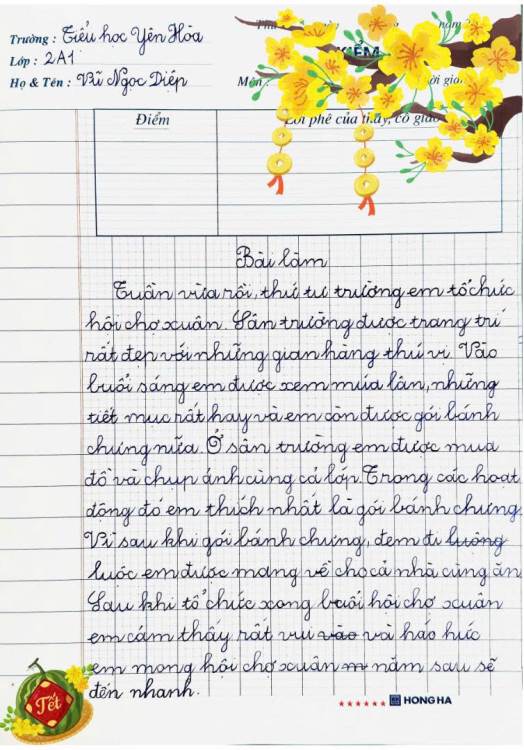 Trường : Tiểu học Yên Hòa
Lớp : 2A1
Họ & Tên : Vũ Ngọc Diệp
KIỂM
Môn :
Điểm
Lời phê của thầy, cô giáo
Bài làm
Tuần vừa rồi, thứ tư trường em tổ chức
hội chợ xuân. Sân trường được trang trí
rất đẹp với những gian hàng thú vị. Vào
buổi sáng em được xem múa lân, những
tiết mục rất hay và em còn được gói bánh
chưng nữa. Ở sân trường em được mua
đồ và chụp ảnh cùng cả lớp. Trong các hoạt
động đó em thích nhất là gói bánh chưng.
Vì sau khi gói bánh chưng, đem đi luộng
luộc em được mang về cho cả nhà cùng ăn
Sau khi tổ chức xong buổi hội chợ xuân
em cảm thấy rất vui vào và háo hức
em mong hội chợ xuân năm sau sẽ
đến nhanh.
Tết
HONG HA